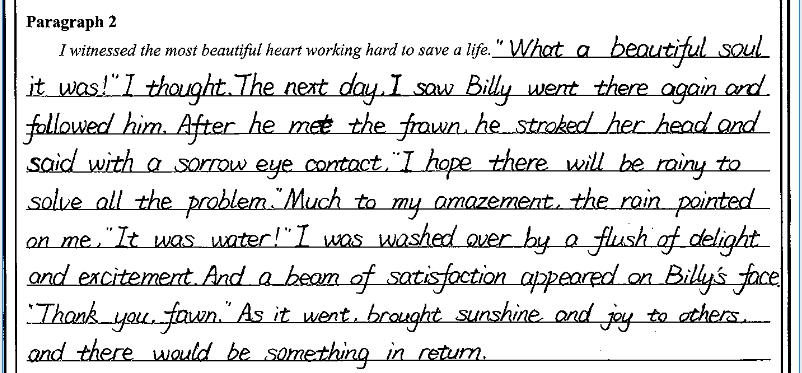 Paragraph 2
I witnessed the most beautiful heart working hard to save a life. "What a beautiful soul
it was!" I thought. The next day, I saw Billy went there again and
followed him. After he met the frawn, he stroked her head and
said with a sorrow eye contact, "I hope there will be rainy to
solve all the problem." Much to my amazement, the rain pointed
on me, "It was water!" I was washed over by a flush of delight
and excitement. And a beam of satisfaction appeared on Billy's face.
"Thank you, fawn." As it went, brought sunshine and joy to others,
and there would be something in return.